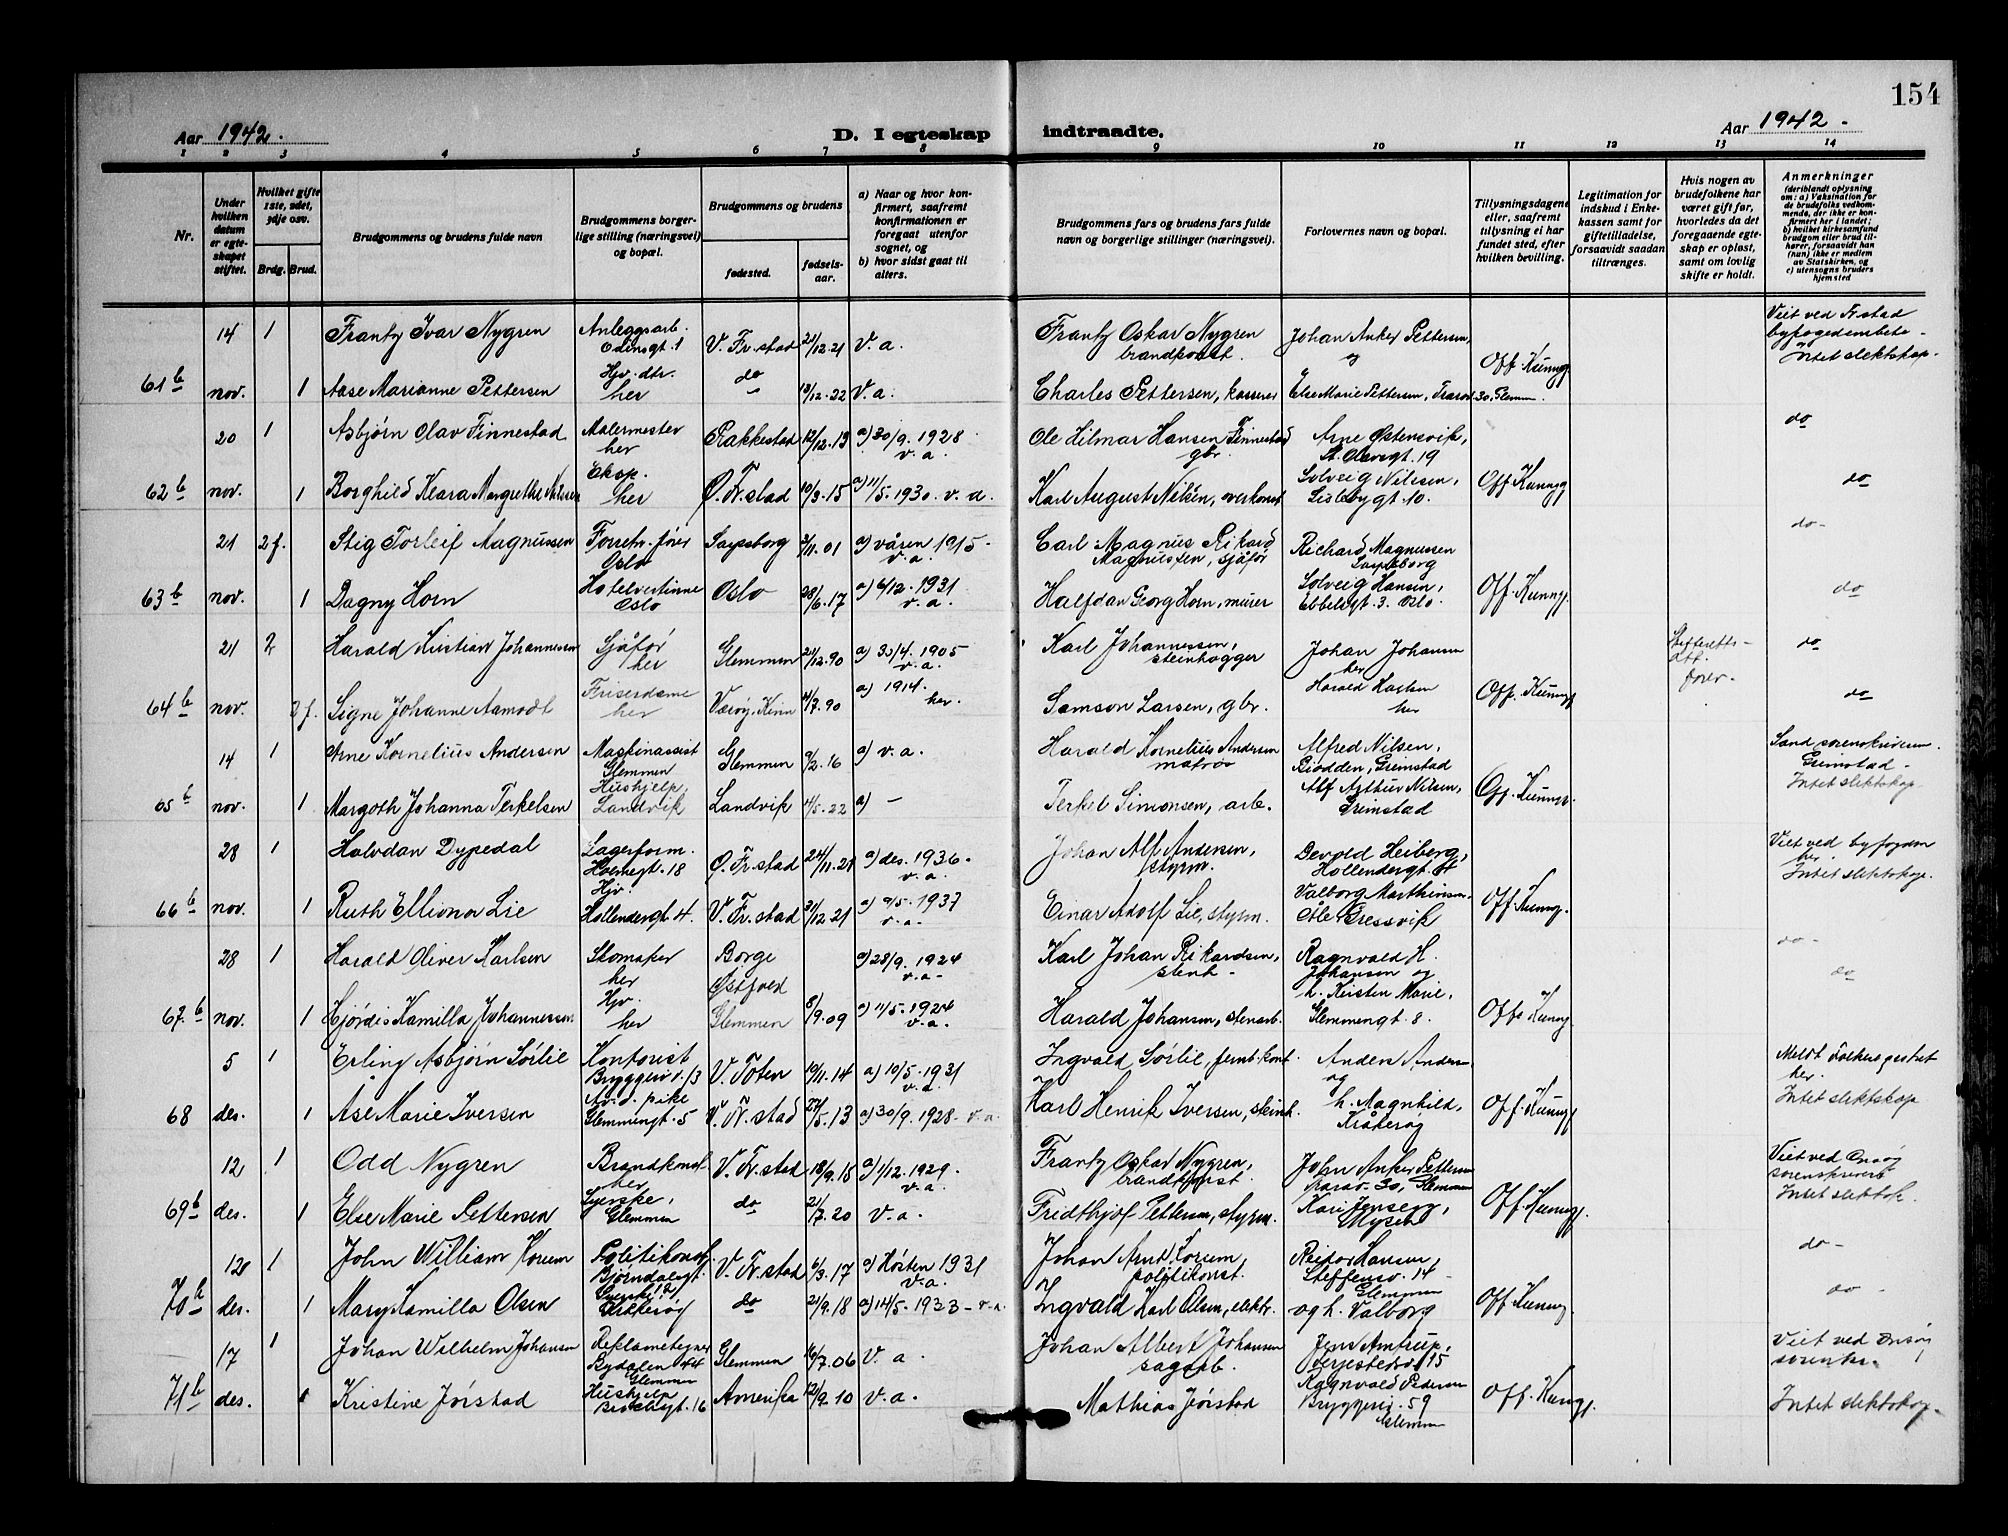 154
Aar 1942.
D. I egteskap indtraadte.
Aar 1942.
1 2 3 4 5 6 7 8 9 10 11 12 13 14
Nr.
Under hvilken datum er egteskapet stiftet.
Hvilket gifte 1ste, 2det, 3dje osv.
Brdg. Brud.
Brudgommens og brudens fulde navn
Brudgommens borgerlige stilling (næringsvei) og bopæl.
Brudgommens og brudens
fødested.
fødselsaar.
a) Naar og hvor konfirmert, saafremt konfirmationen er foregaat utenfor sognet, og
b) hvor sidst gaat til alters.
Brudgommens fars og brudens fars fulde navn og borgerlige stillinger (næringsvei).
Forlovernes navn og bopæl.
Tillysningsdagene eller, saafremt tillysning ei har fundet sted, efter hvilken bevilling.
Legitimation for indskud i Enkekassen samt for giftetilladelse, forsaavidt saadan tiltrænges.
Hvis nogen av brudefolkene har været gift før, hvorledes da det foregaaende egteskap er opløst, samt om lovlig skifte er holdt.
Anmerkninger
(deriblandt oplysning om: a) Vaksination for de brudefolks vedkommende, der ikke er konfirmert her i landet; b) hvilket kirkesamfund brudgom eller brud tilhører, forsaavidt han (hun) ikke er medlem av Statskirken, og c) utensogns bruders hjemsted
14 1 Frantz Ivar Nygren Anleggsarb. Odinsgt. 1 V. Fr.stad 21/12.21 V. a. Frantz Oskar Nygren brandkonst. Johan Anker Pettersen, og Viet ved F.stad byfogedembete. Intet slektskap.
61 b nov. 1 Aase Marianne Pettersen Hjv. dtr. her do 13/12.22 V. a. Charles Pettersen, kasserer Else Marie Pettersen, 30, Glemm. Off. Kunng.
20 1 Asbjørn Olav Finnestad Malermester her Rakkestad 12/12.13 a) 30/9. 1928 v. a. Ole Hilmar Hansen Finnestad gbr. Arne Østensvik, St. Olavsgt. 19 do
62 b nov. 1 Borghild Klara Margrethe Nilsen Eksp. her Ø. Fr.stad 10/3.15 a) 11/5. 1930. v. a. Karl August Nilsen, overkonst. Solveig Nilsen, Lislebygt. 10. Off. Kunng. do
21 2 f. Stig Torleif Magnussen Forretn. fører Oslo Sarpsborg 3/11.01 a) våren 1915. v. a. Carl Magnus Rikard Magnussen, sjåfør Richard Magnussen Sarpsborg do
63 b nov. 1 Dagny Horn Hotelvertinne Oslo Oslo 28/6.17 a) 6/12. 1931 v. a. Halfdan Georg Horn, murer Solveig Hansen, Ebbelsgt. 3. Oslo. Off. Kunng. do
21 2 Harald Kristian Johannesen Sjåfør her Glemmen 21/12.90 a) 30/4. 1905 v. a. Karl Johannessen, steinhogger Johan Johansen her Skifteretts- att. do
64 b nov. 2 f. Signe Johanne Aamodt Friserdame her Værøy, Kinn 4/7.90 a) 1914. her. Samson Larsen, gbr. Harald her Off. Kunng. forev. do
14 1 Arne Kornelius Andersen Maskinassist Glemmen Glemmen 9/2.16 a) v. a. Harald Kornelius Andersen matros Alfred Nilsen, Biodden, Grimstad Sand sorenskriveren. Grimstad.
65 b nov. 1 Margoth Johanna Terkelsen Hushjelp, Landvik Landvik 4/5.22 a) – Terkel Simonsen, arb. Alf Arthur Nilsen, Grimstad Off. Kunng. Intet slektskap
28 1 Halvdan Dypedal Lagerform. 18 Ø. Fr.stad 24/11.21 a) des. 1936. v. a. Johan Alf Andersen, styrm. Devold Heiberg, Hollendergt. 4 Viet ved byfogden her. Intet slektskap.
66 b nov. 1 Ruth Ellionor Lie Hjv. Hollendergt. 4. V. Fr.stad 31/12.21 a) 9/5. 1937 v. a. Einar Adolf Lie, styrm. Valborg Marthinsen, Gressvik Off. Kunng.
28 1 Harald Oliver Karlsen Skomaker her Borge Østfold a) 28/9. 1924 v. a. Karl Johan Rikardsen, stenh. Ragnvald H. Johansen og do
67. b nov. 1 Hjørdis Kamilla Johannessen Hjv. her Glemmen 8/9.09 a) 11/5. 1924 v. a. Harald Johansen, stenarb. h. Kristen Marie, Glemmengt. 8. Off. Kunng. do
5 1 Erling Asbjørn Sørlie Kontorist Bryggeriv. 13 V. Toten 19/11.14 a) 10/5. 1931 v. a. Ingvald Sørlie, Anders Andersen og Meldt Folkeregistret her.
68 des. 1 Ase Marie Iversen pike Glemmengt. 5 V. Fr.stad 27/5.13 a) 30/9. 1928 v. a. Karl Henrik Iversen, steinh. h. Magnhild, Kråkerøy Off. Kunng. Intet slektskap
12 1 Odd Nygren Brandkonst. her V. Fr.stad 18/9.15 a) 1/12. 1929. v. a. Frantz Oskar Nygren, brandkonst. John Anker Pettersen 30, Glemmen Viet ved Onsøy sorenskriveri
69 b des. 1 Else Marie Pettersen Syerske, Glemmen do 21/7.20 V. a. Fridthjof Pettersen, styrm. Kari Jensen, Mysen Off. Kunng. Intet slektsk.
12 1 John William Korum Politikonst. Bjørndalsgt. 12 V. Fr.stad 6/3.17 a) Høsten 1931 v. a. Johan Arnt Korum, politikonst. Reidar Hansen, Steffensv. 14 Glemmen do
70 b des. 1 Mary Kamilla Olsen Syerske Kråkerøy do 21/9.18 a) 14/5. 1933 v. a. Ingvald Karl Olsen, elektr. og h. Valborg Off. Kunng. do
17 1 Johan Wilhelm Johansen Reklametegner Lydalen Glemmen Glemmen 16/7.06 V. a. Johan Albert Johansen sagarb. Jens Amtrup, 15 Viet ved Onsøy sorenskr.
71 b des. 1 Kristine Jørstad Hushjelp 16 Amerika 12/9.10 V. a. Mathias Jørstad Ragnvald Pedersen Bryggeriv. 59 Glemmen Off. Kunng. Intet slektskap.